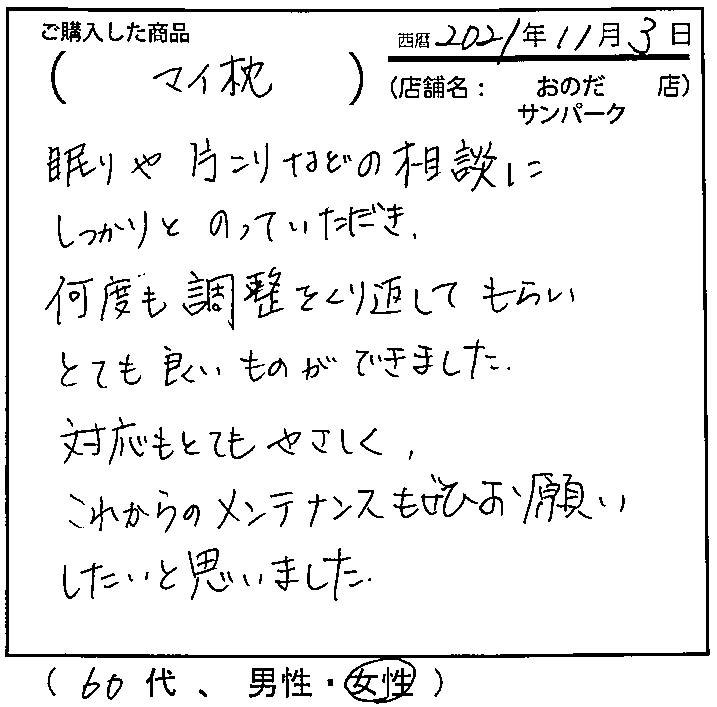 ご購入した商品
西暦 2021年11月3日
( マイ枕 )
(店舗名： おのだサンパーク 店)
眠りや片こりなどの相談に
しっかりとのっていただき、
何度も調整をくり返してもらい
とても良いものができました。
対応もとてもやさしく、
これからのメンテナンスもぜひお願い
したいと思いました。
( 60代、男性・女性 )